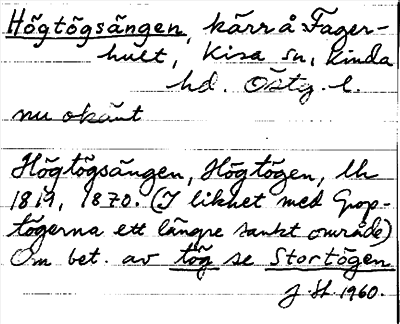 Högtögsängen, kärr å Fager-
hult, Kisa sn, Kinda
hd. Östg. l.
nu okänt
Högtögsängen, Högtögen, lh
1819, 1870. (I likhet med Grop-
tögerna ett längre sankt område)
Om bet. av tög se Stortögen
J. St 1960.